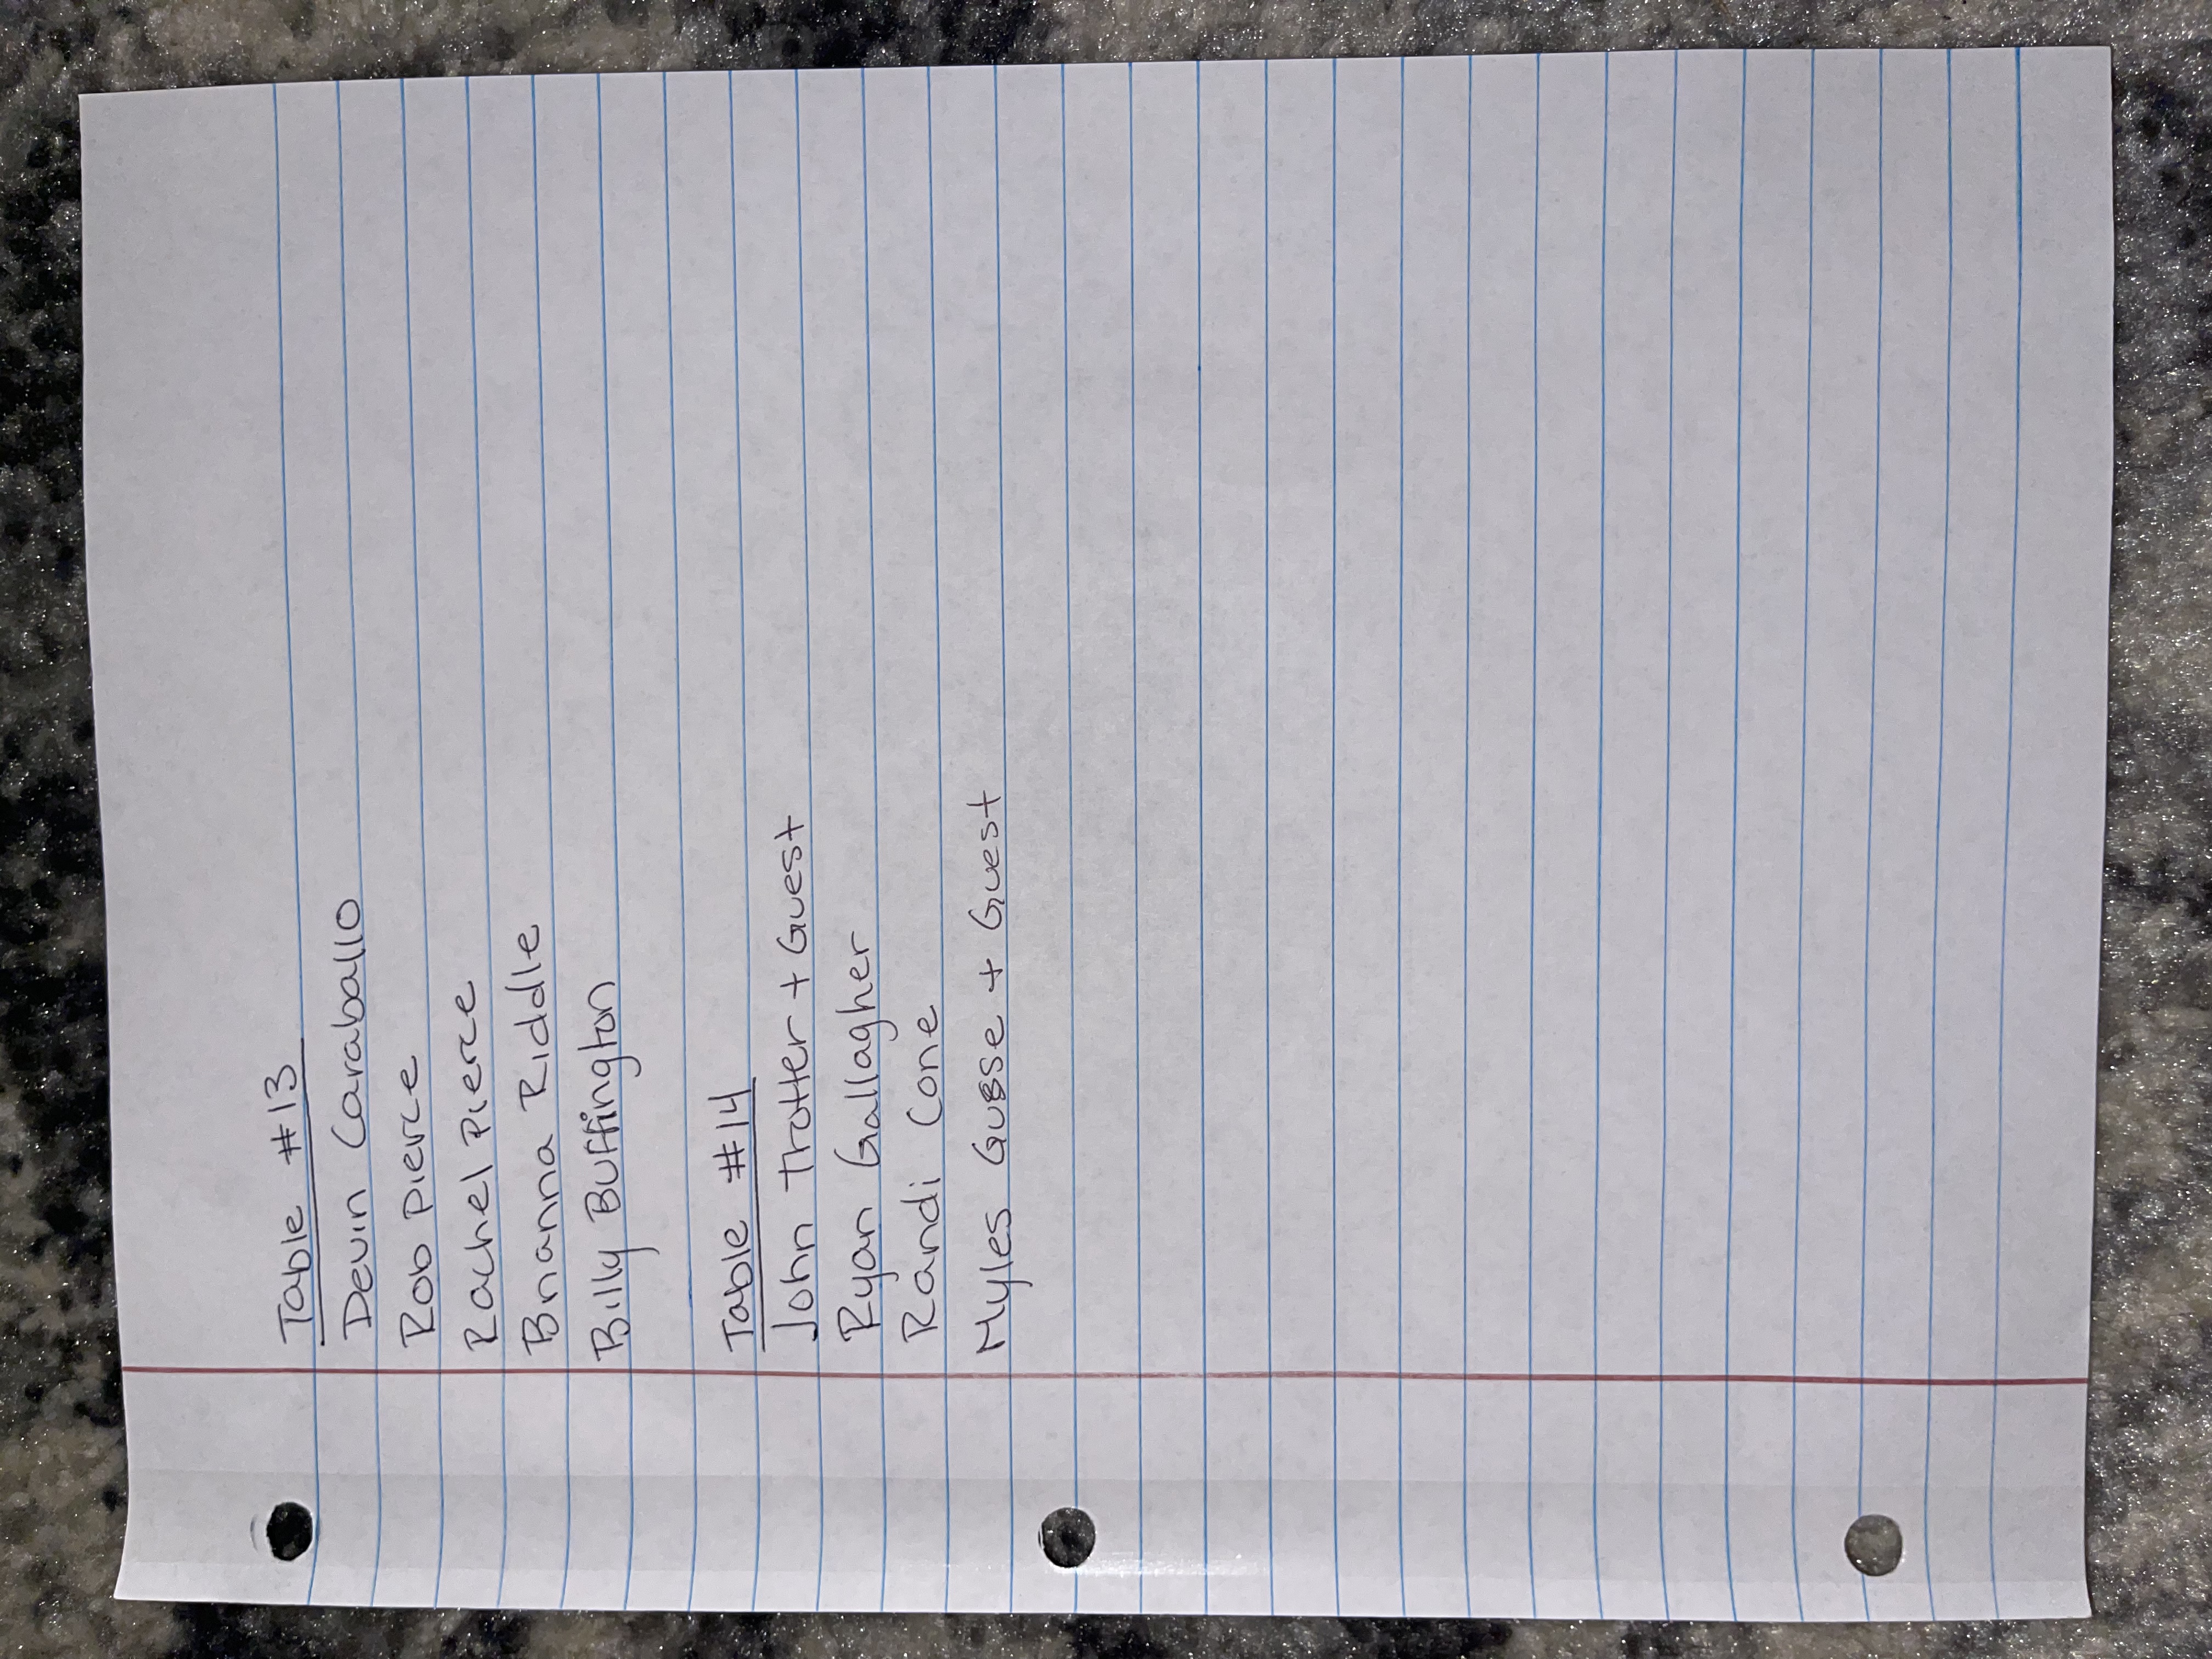 Table #13
Devin Caraballo
Rob Pierce
Rachel Pierce
Brianna Riddle
Billy Buffington
Table #14
John Trotter + Guest
Ryan Gallagher
Randi Cone
Myles Gusse + Guest